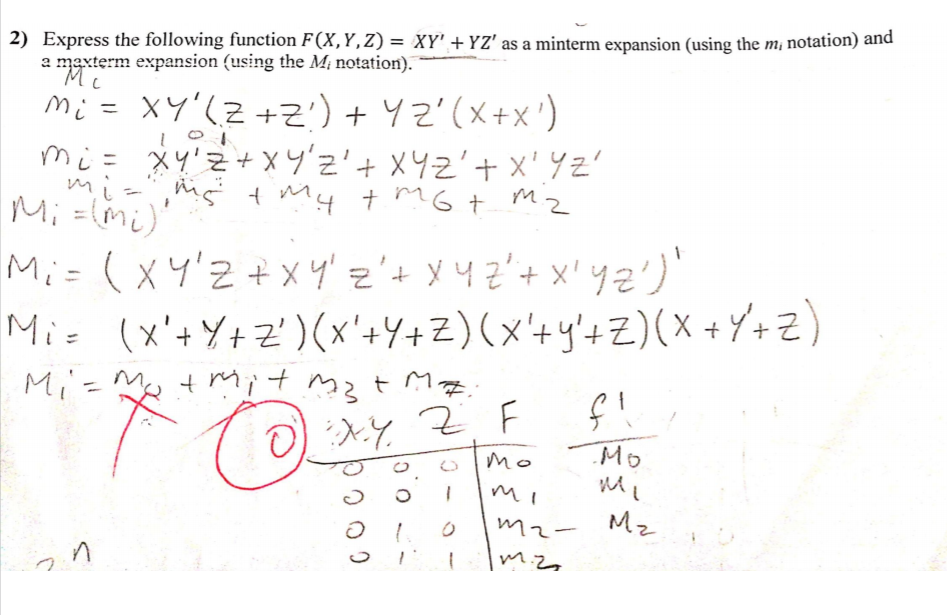 2) Express the following function F(X,Y,Z) = XY' + YZ' as a minterm expansion (using the mᵢ notation) and
a maxterm expansion (using the Mᵢ notation).
Mi
mi = XY'(Z+Z') + YZ'(X+X')
1 0 1
mi = XY'Z + XY'Z' + XYZ' + X'YZ'
mi = m5 + m4 + m6 + m2
Mi = (mi)'
Mi = (XY'Z + XY'Z' + XYZ' + X'YZ')'
Mi = (X'+Y+Z')(X'+Y+Z)(X'+Y'+Z)(X+Y'+Z)
Mi = m0 + m1 + m3 + m7.
0
X Y Z F f'
0 0 0 m0 M0
0 0 1 m1 M1
0 1 0 m2 – M2
0 1 1 m2